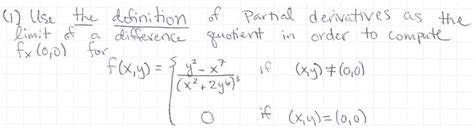 (1) Use the definition of Partial derivatives as the
limit of a difference quotient in order to compute
fx(0,0) for
f(x,y) = { (y² - x⁷)/(x² + 2y⁶)³ if (x,y) ≠ (0,0)
0 if (x,y) = (0,0)